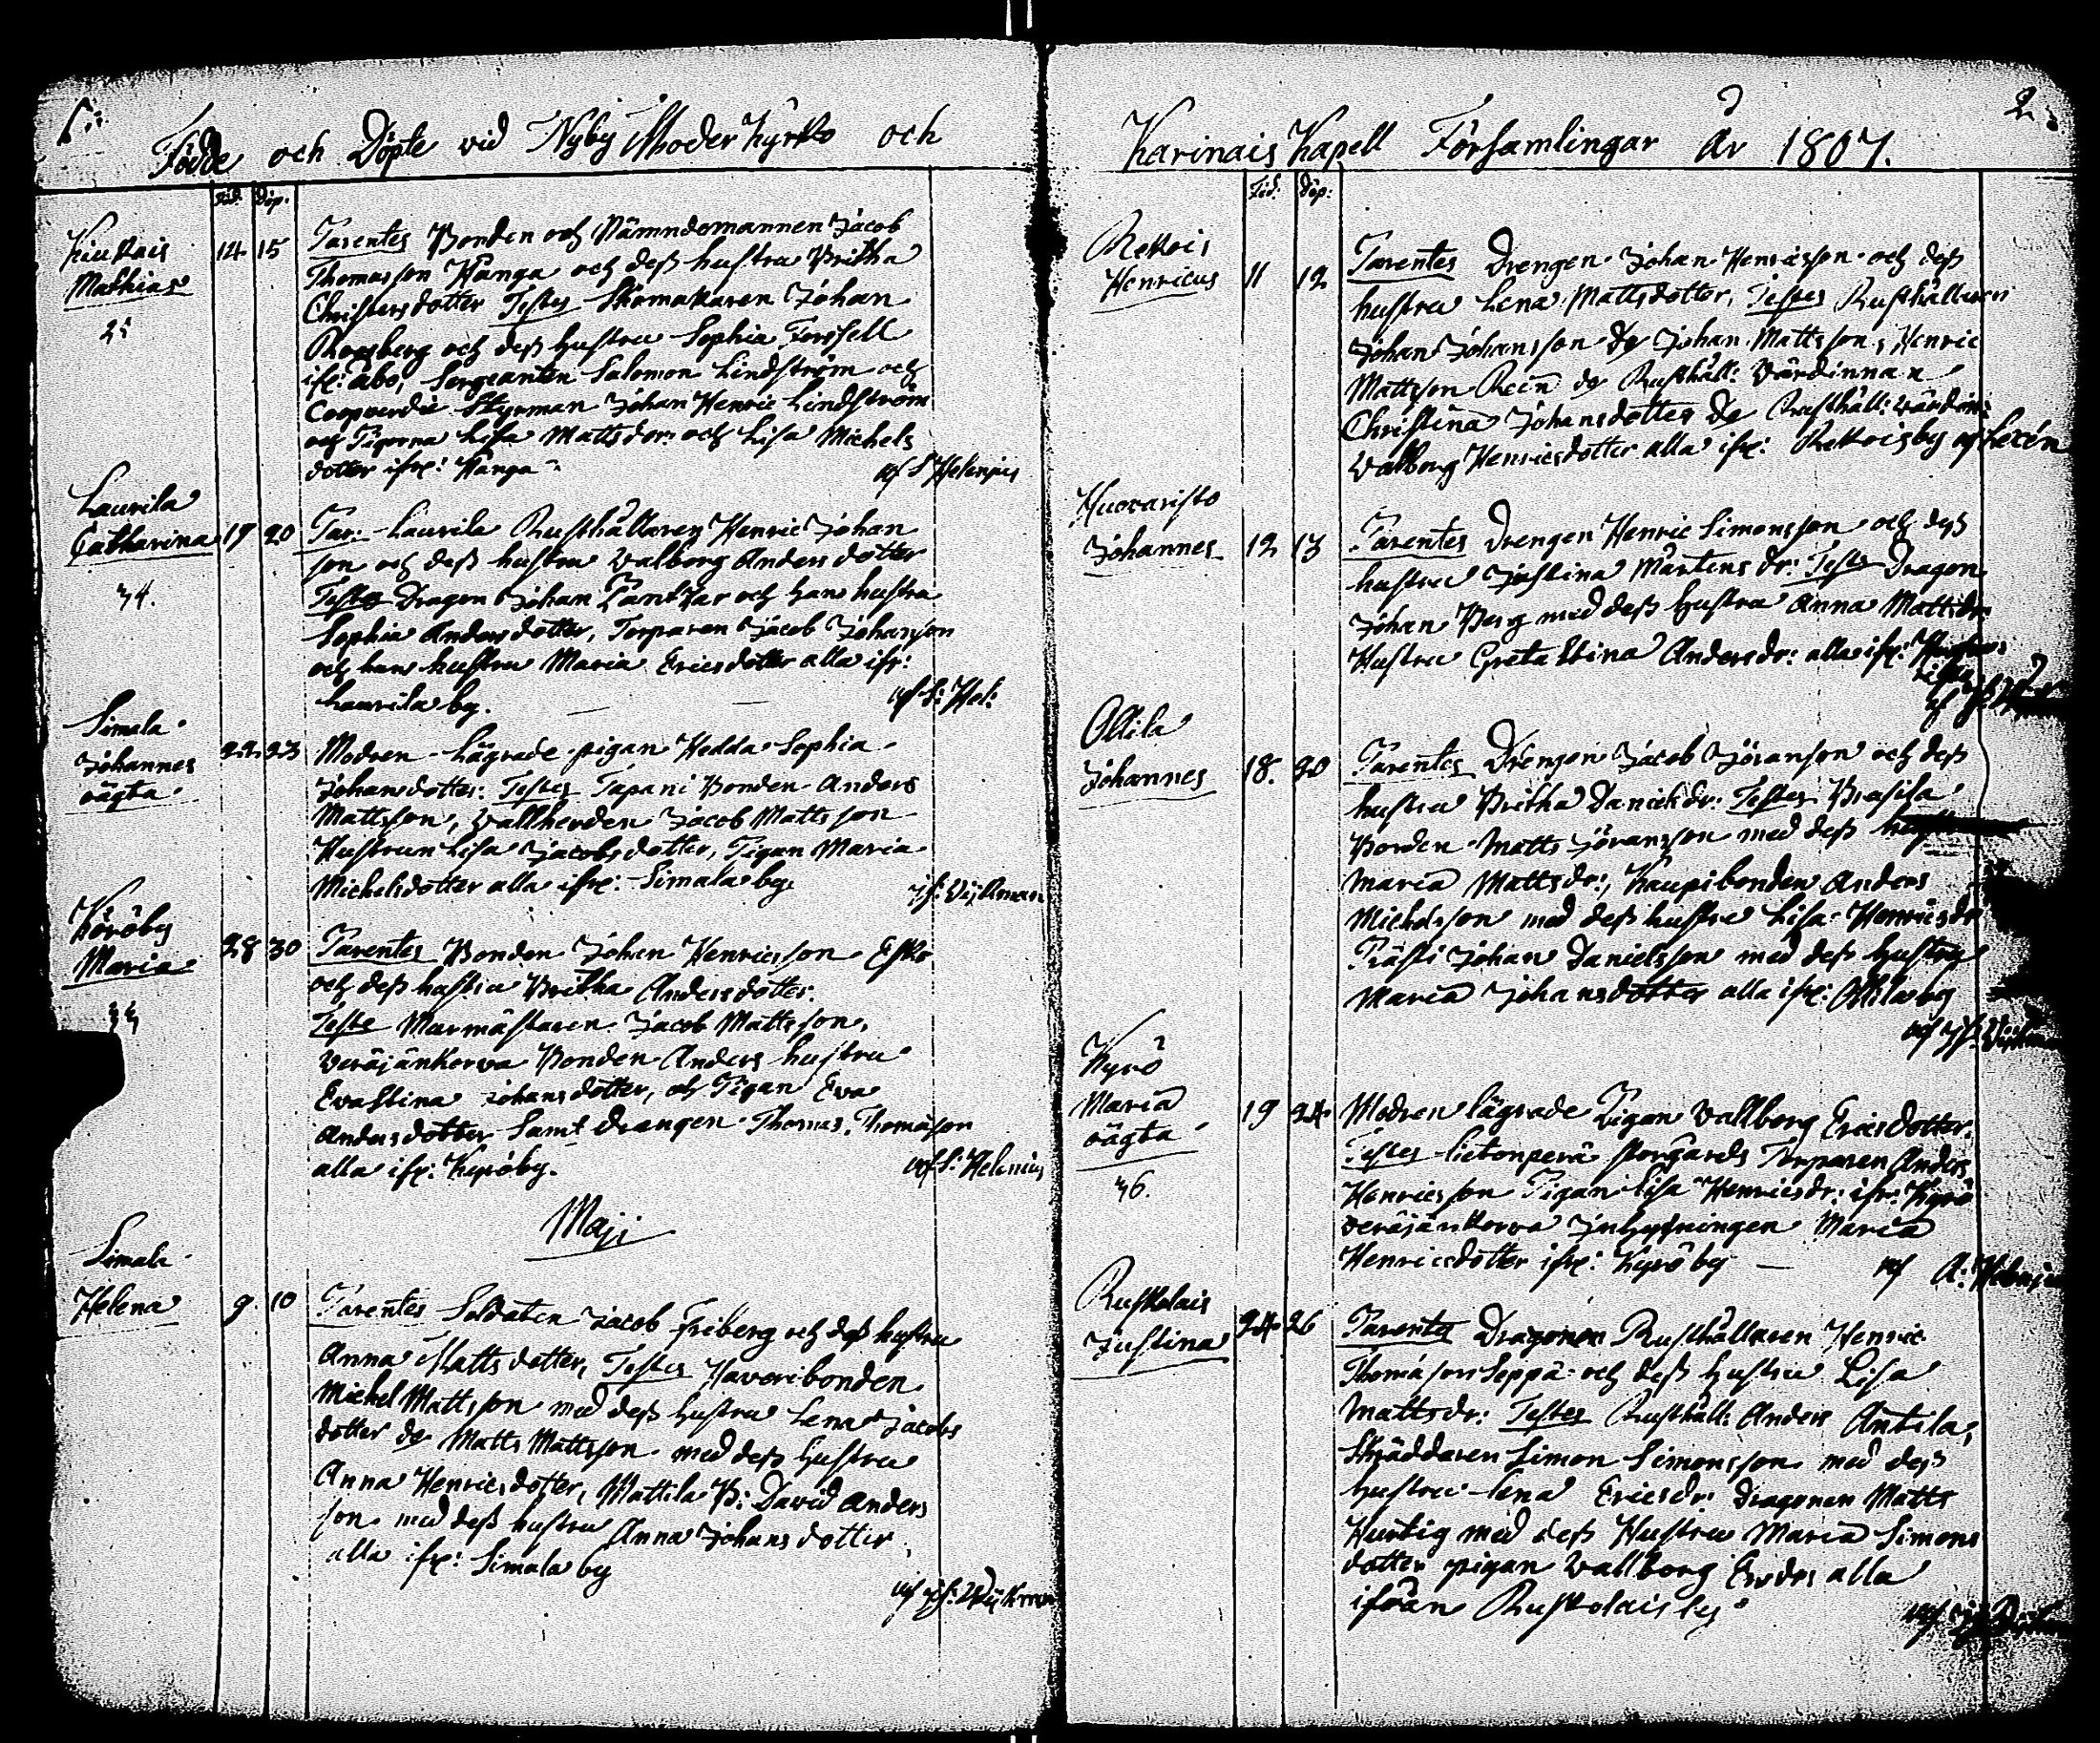 Födde och Döpte vid Nyby Moder Kyrko och
Föd: Döp:
Kiukais
Mathias
14 15
Parentes Bonden och Nämndemannen Jacob
Thomasson Hånga och dess hustru Britha
Christersdotter Testes Skomakaren Johan
Rosberg och dess hustru Sophia Forssell
ifr: Åbo, Sergeanten Salomon Lindström och
Styrman Johan Henric Lindström
och Pigorna Lisa Mattsdor: och Lisa Michels
dotter ifr: Hånga
af S Helenius
Laurila
Catharina
34.
19 20
Par: Laurila Rusthållaren Henric Johan
son och dess hustru Walborg Anders dotter
Testes Dragon Johan Pantzar och hans hustru
Sophia Andersdotter, Torparen Jacob Johansson
och hans hustru Maria Ericsdotter alla ifr:
Laurila by.
af S: Hel:
Simala
Johannes
oägta
22 23
Modren Lägrade pigan Hedda Sophia
Johansdotter. Testes Tapani Bonden Anders
Mattsson, Vallherden Jacob Mattsson
Hustrun Lisa Jacobsdotter, Pigan Maria
Michelsdotter alla ifr: Simala by.
Köröby
Maria
28 30
Parentes Bonden Johan Henricsson Esko
och dess hustru Britha Andersdotter.
Teste Murmästaren Jacob Mattsson,
Veräjänkorva Bonden Anders hustru
Eva Stina Johansdotter, och Pigan Eva
Andersdotter Samt drengen Thomas Thomasson
alla ifr: Kyröby.
af S: Helenius
Maji
Simala
Helena
9 10
Parentes Soldaten Jacob Friberg och dess hustru
Anna Mattsdotter, Testes Haveribonden
Michel Mattsson med dess hustru Lena Jacobs
dotter do Matts Mattsson med dess hustru
Anna Henricsdotter, Mattila B: David Anders
son med dess hustru Anna Johansdotter
alla ifr: Simala by
Karinais Kapell Församlingar År 1807.
2.
Föd: Döp:
Rekois
Henricus
11 12
Parentes Drengen Johan Henricsson och dess
hustru Lena Mattsdotter, Testes Rusthållaren
Johan Johansson do Johan Mattsson, Henric
Mattsson Rein do Rusthåll: Värdinnan
Christina Johansdotter do Rusthåll: värdin:
Walborg Henricsdotter alla ifr: Rekoisby af Lexén
Huovaristo
Johannes
12 13
Parentes Drengen Henric Simonsson och dess
hustru Justina Mårtens dr: Teste Dragon
Johan Berg med dess hustru Anna Mattsdr:
Hustru Greta Stina Andersdr: alla ifr:
Ollila
Johannes
18. 20
Parentes Drengen Jacob Jöranson och dess
hustru Britha Danielsdr: Testes
Bonden Matts Jöransson med dess
Maria Mattsdr:, Kaupi bonden Anders
Michelsson med dess hustru Lisa Henricsdr
Prästi Johan Danielsson med dess hustru
Maria Johansdotter alla ifr: Ollila by
Kyrö
Maria
oägta
36.
19 24
Modren lägrade Pigan Wallborg Ericsdotter.
Testes Lietonperä Storgårds Torparen Anders
Henricsson Pigan Lisa Henricsdr: ifr: Kyrö
Veräjänkorva Inhysningen Maria
Henricsdotter ifr: Kyrö by
af A: Helenius
Ruskolais
Justina
24 26
Parentes Dragonen Rusthållaren Henric
Thomasson Seppä och dess hustru Lisa
Mattsdr: Testes Rusthåll: Anders Antila,
Skräddaren Simon Simonsson med dess
hustru Lena Ericsdr: Dragonen Matts
Hurtig med dess Hustru Maria Simons
dotter pigan Wallborg alla
ifrån Ruskolais by